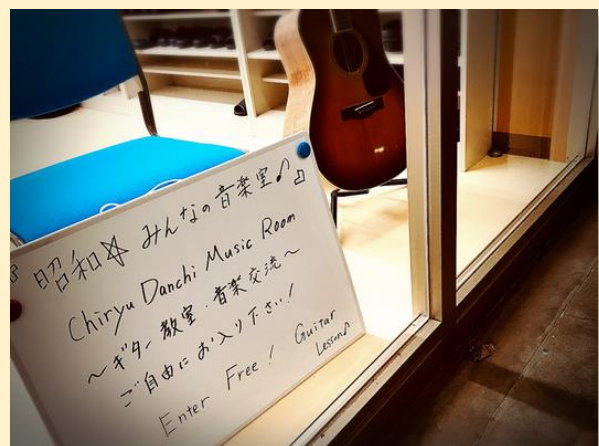 昭和☆みんなの音楽室♪
Chiryu Danchi Music Room
～ギター教室・音楽交流～
ご自由にお入り下さい!
Enter Free! Guitar
Lesson♪